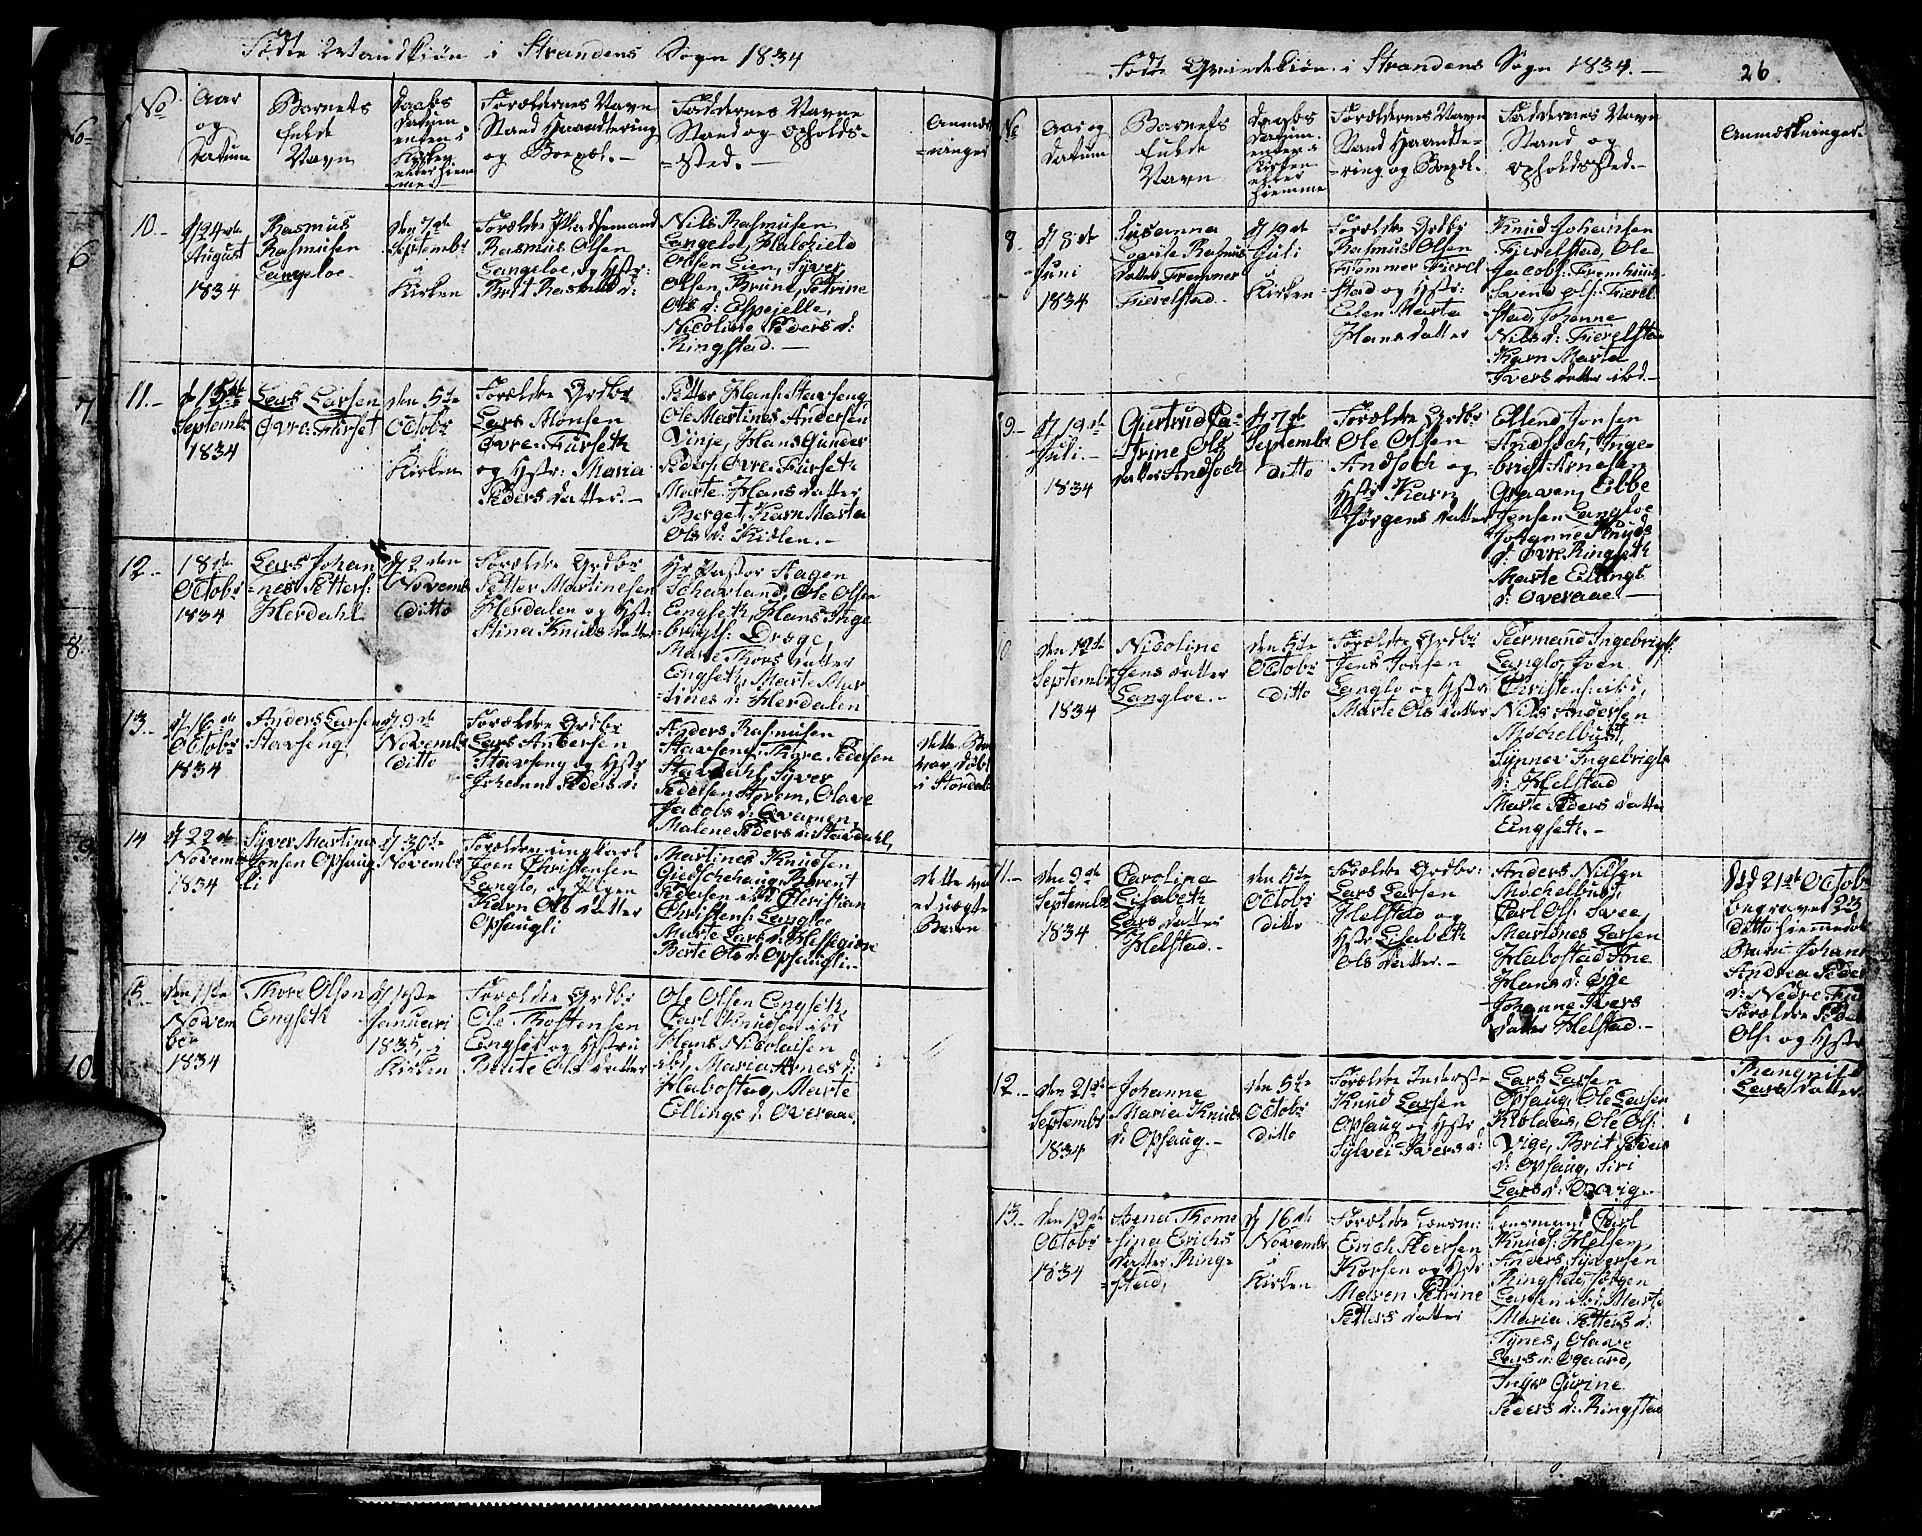 Fødte Mandkiøn i Strandens Sogn 1834
No
Aar
og
Datum
Barnets
fulde
Navn
Daabs
Datum
enten i
Kirken
eller Hiem
me
Forældrenes Navn
Stand Haandtering
og Boepæl.
Faddernes Navne
Stand og Opholds-
sted.
10.
d 24de
August
1834
Rasmus
Rasmusen
Langeloe
den 7de
Septembr
i
Kirken
Forældre Pladsemand
Rasmus Olsen
Langeloe, og Hstr:
Brit Rasmus d:
Nils Rasmusen
Langeloe,
Olsen Lien, Syver
Olsen, Brune, Petrine
Ols d: Espejelle,
Nicoline Peders d:
Ringstad.
11.
Septembr
1834
Lars Larsen
Øvre-Furset
den 5te
Octobr
i
Kirken
Forældre Grdbr
Lars Monsen
Øvre-Furseth
og Hstr: Maria
Peders datter.
Petter Hans: Stavseng
Ole Martines Andersen
Vinje, Hans Gunder
Peders: Øvre-Furseth
Marte Hans datter
Berget, Karn Marta
Ols d: Kiølen.
12.
18de
Octobr
1834
Lars Johan
nes Petters:
Herdahl
d 2den
Novemb
ditto
Forældre Grdbr
Petter Martinesen
Herdalen og Hst:
Stina Knuds datter
Hr Pastor Hagen
Ole Olsen
Engseth, Hans Inge
brigts: Dræge,
Marte Thors datter
Engseth, Marte Mar
tines d: Herdalen
13.
d 16de
Octobr
1834
Anders Larsen
Stavseng
d 9de
Novembr
ditto
Forældre Grdbr
Lars Andersen
Stavseng og Hstr
Johanne Peders d:
Anders Rasmusen
Stavseng, Thore Pedersen
Stavdahl, Syver
Pedersen Hovem, Olave
Jacobs d: Qvamen,
Malene Peders d: Stavdahl,
dette Bar
var døbt
i Stordal
14
d 22de
Novemb
1834
Syver Martinus
Joensen Opsaug
li
d 30te
Novembr
Forældre ungkarl
Joen Christensen
Langlo, og Pigen
Karn Ols datter
Opsaugli
Martines Knudsen
Giedschehaug, Bernt
Pedersen ibd Christian
Christens: Langloe
Marte Lars d: Hessegione
Berte Ols d: Opsaugli.
dette var
et uægte
Barn
15.
den 11te
Novem
ber
1834
Thore Olsen
Engseth
d 1ste
Januari
1835, i
Kirken
Forældre Grdbr
Ole Thostensen
Engset og Hstru
Berite Ols datter
Ole Olsen Engseth
Carl Knudsen ibd
Hans Nicolaisen
ibd, Maria Arnes d:
Habostad, Marte
Ellings d: Overaae.
Fødte Qvindekiøn i Strandens Sogn 1834.
26
No
Aar og
Datum
Barnets
fulde
Navn
Daabs
Datum
enten i
Kirken
eller
Hiemme
Forældrenes Navn
Stand Haandte-
ring og Boepæl.
Faddernes Navn
Stand og
Opholdssted.
Anmærkninger.
8
d 8de
Juni
1834
Susanna
Lovise Rasmus
datter Frommer
Fierelstad.
d 19de
Juli
i
Kirken
Forældre Grdbr
Rasmus Olsen
Frommer Fierel
stad og Hstr:
Elen Marta
Hans datter
Knud Johansen
Fierelstad, Ole
Jacobs:
Svend Ols: Fierel
stad, Johanne
Nils d: Fierelstad
Karn Marta
Ivers datter ibd.
9.
d 19de
Juli.
1834
Gurtrud Ca-
trine Ols
datter Andsoch
d 7de
Septembr
ditto
Forældre Grdbr
Ole Olsen
Andsoch og
Hstr Karn
Jørgens datter
Ellend Jonsen
Andsoch, Inge-
brigt Arnesen
Graven, Ebbe
Jensen Langloe
Johanne Knuds
d: Øvre Ringseth
Marte Ellings
d: Overaae
10
Septembr
1834
Nicoline
Jens datter
Langloe.
den 5te
Octobr
ditto
Forældre Grdbr
Jens Jonsen
Langlo og Hstr
Marte Ols datter
Peermand Ingebrigts:
Langlo, Joen
Christens: ibd,
Nils Andersen
Mochelbust,
Synner Ingebrigts
d: Helstad
Marte Peders datter
Engseth.
11.
den 9de
Septembr
1834
Carolina
Lisabeth
Lars datter
Helstad.
den 5te
Octobr
ditto
Forældre Grdbr:
Lars Larsen
Helstad og
Hstr Lisabeth
Ols datter.
Anders Nilsen
Mochelbust,
Carl Ols: Svee,
Martines Larsen
Habostad Ane
Hans d: Øye
Johanne Ivers
datter Helstad.
Død 21de Octobr
begravet 23
ditto hiemmedøbt
Barn Johanne
Andrea Peders
d: Nedre Furset
Forældre Peder
Ols: og Hstr
Rangnild
Lars datter.
12.
den 21de
Septembr
1834
Johanne
Maria Knuds
d: Opsaug.
den 5te
Octobr
ditto
Forældre Inderste
Knud Larsen
Opsaug og Hstr
Sylvei Ivers d:
Lars Larsen
Opsaug, Ole Larsen
Kiølaas, Ole Ols:
Vige, Brit Peders
d: Opsaug, Siri
Lars d: Overvig.
13.
den 19de
Octobr
1834
Anna Thome
sina Erichs
datter Ring-
stad,
d 16de
Novembr
i
Kirken
Forældre Lensm:
Erich Pedersen
Korsen og Hstr
Maren Petrine
Petters datter
Lensmand Carl
Knuds: Helsem,
Anders Syversen
Ringstad, Jørgen
Larsen ibd, Marte
Maria Petters d:
Tynes, Olave
Lars d: Øgaard,
Inger Gurine
Peders d: Ringstad